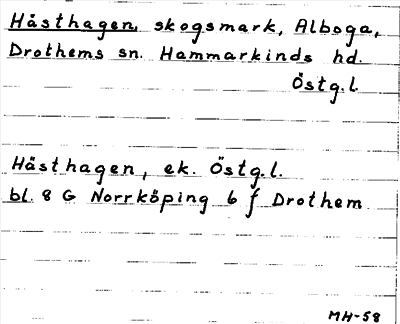 Hästhagen, skogsmark, Alboga,
Drothems sn. Hammarkinds hd.
Östg.l.
Hästhagen, ek. Östg.l.
bl. 8 G Norrköping 6 f Drothem
MH-58